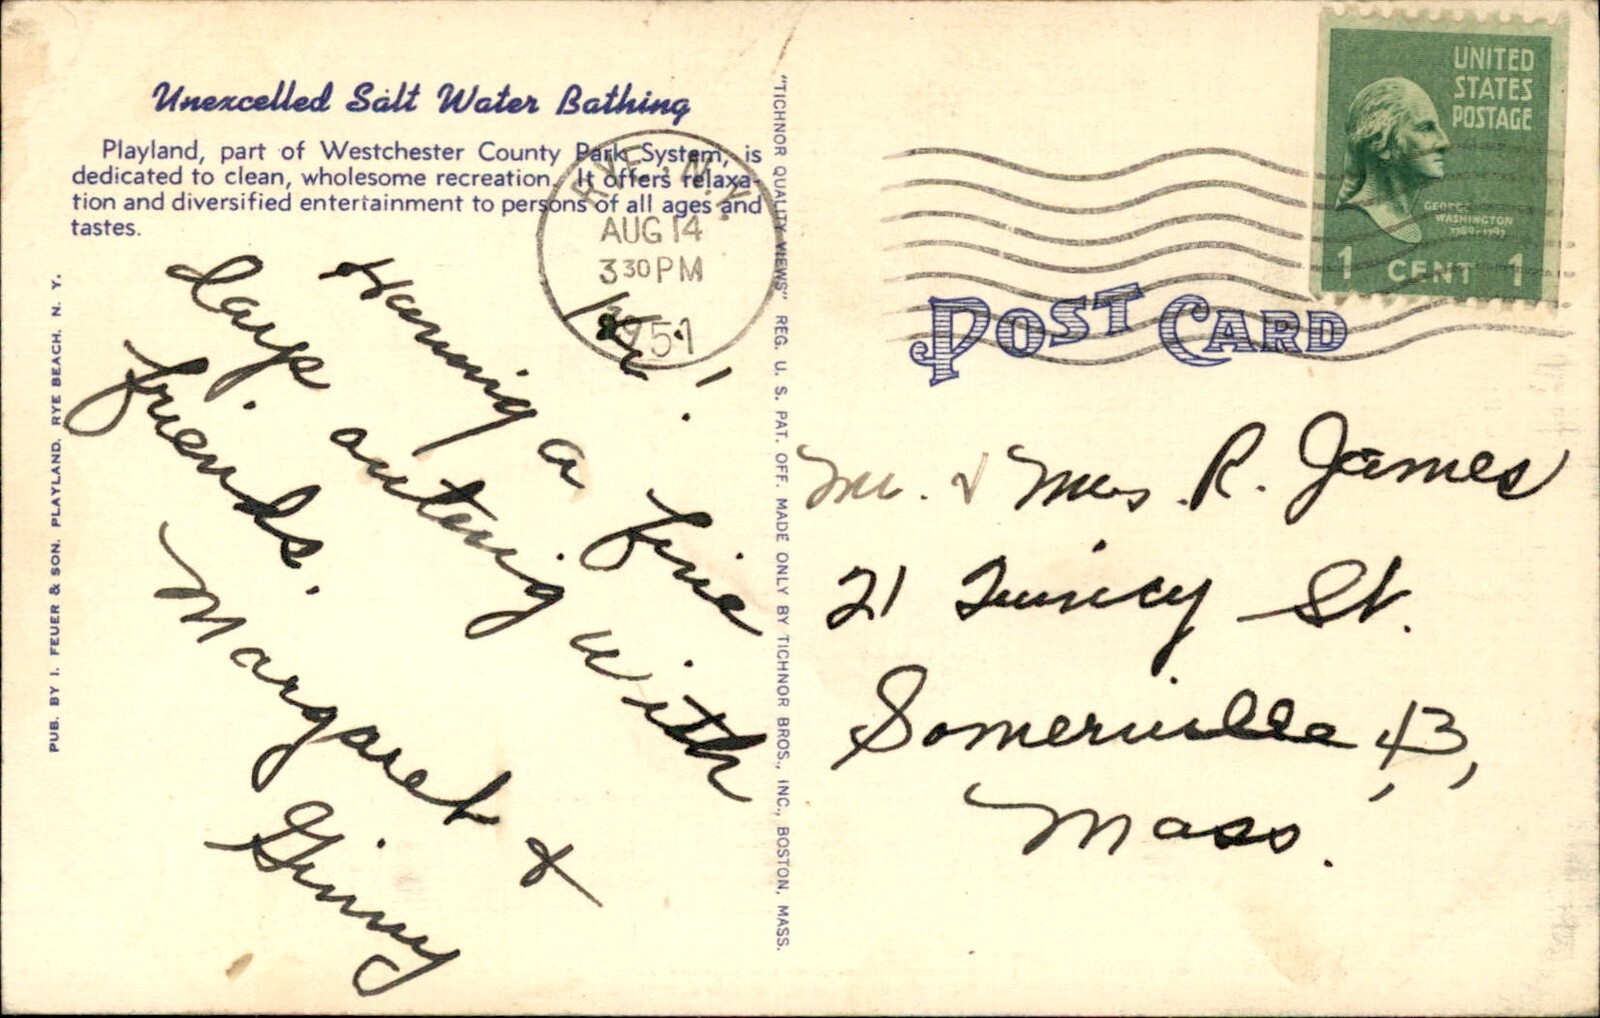 Unexcelled Salt Water Bathing
Playland, part of Westchester County Park System, is
dedicated to clean, wholesome recreation. It offers relaxa-
tion and diversified entertainment to persons of all ages and
tastes.
PUB. BY I. FEUER & SON. PLAYLAND. RYE BEACH. N. Y.
"TICHNOR QUALITY VIEWS" REG. U. S. PAT. OFF. MADE ONLY BY TICHNOR BROS., INC., BOSTON, MASS.
RYE, N.Y.
AUG 14
3 30 PM
1951
UNITED
STATES
POSTAGE
GEORGE
WASHINGTON
1789-1797
1 CENT 1
POST CARD
Hi!
Having a fine
days outing with
friends.
Margaret &
Ginny
Mr. & Mrs. R. James
21 Quincy St.
Somerville 43,
Mass.